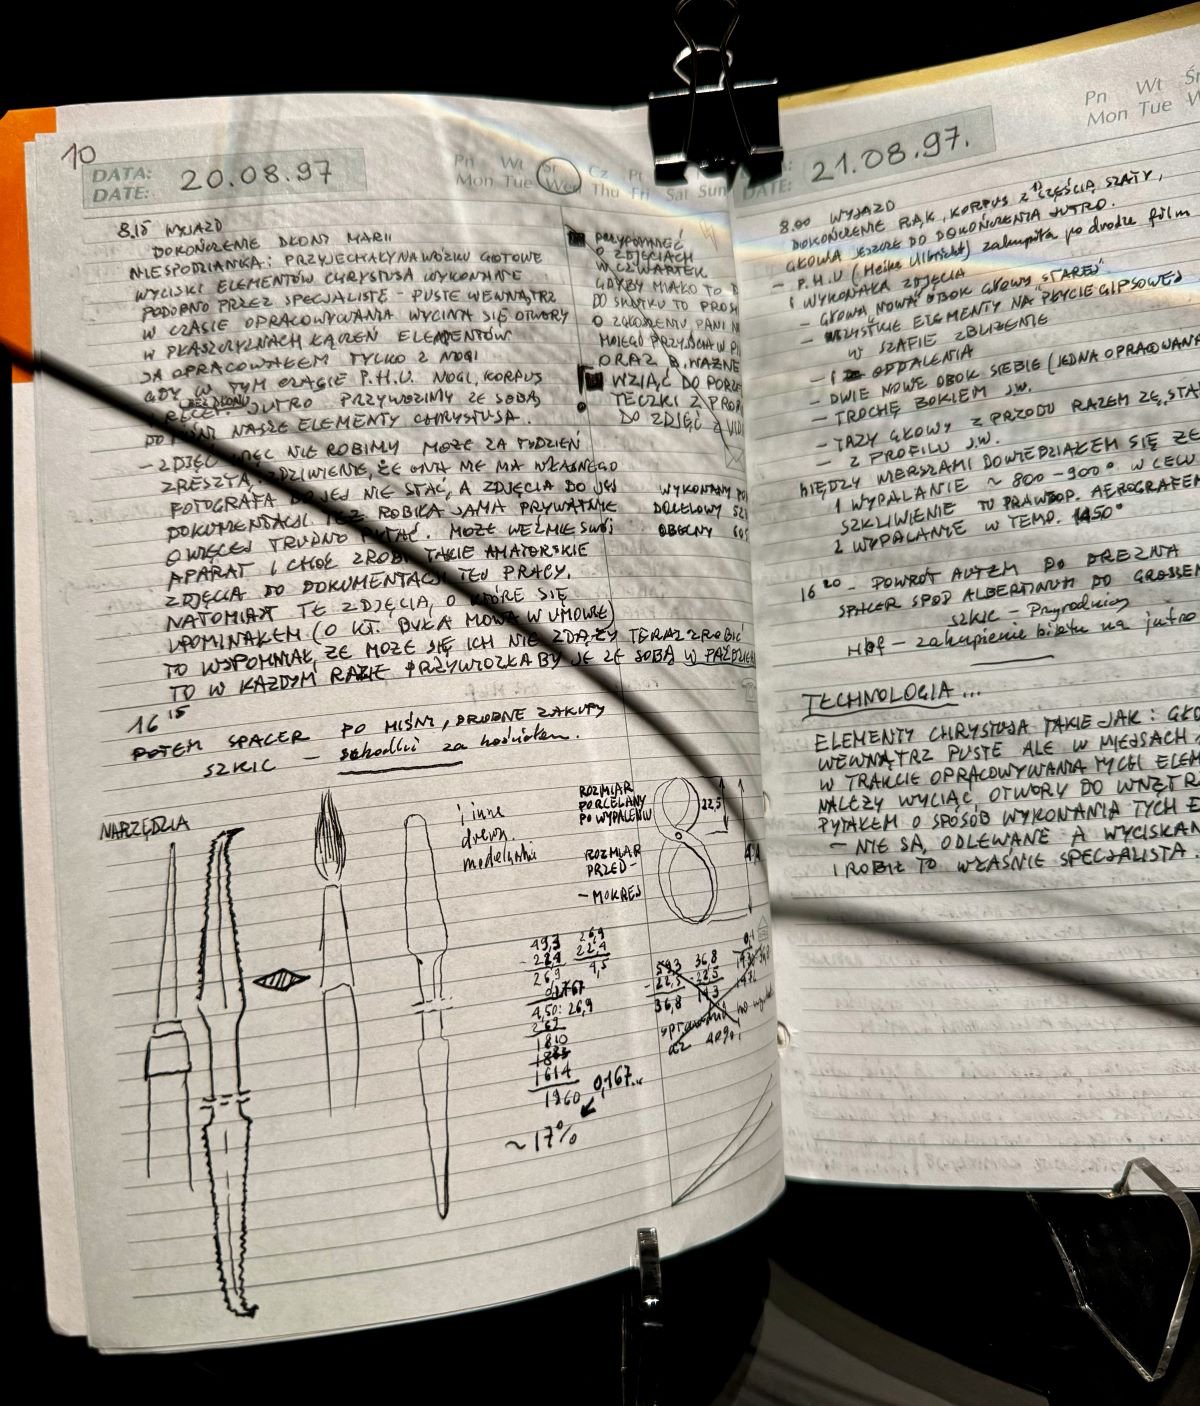 10
DATA:
DATE: 20.08.97
Pn Wt Śr Cz Pt
Mon Tue Wed Thu Fri Sat Sun
8.15 WYJAZD
DOKOŃCZENIE DŁONI MARII
NIESPODZIANKA: PRZYJECHAŁY NA WÓZKU GOTOWE
WYCISKI ELEMENTÓW CHRYSTUSA WYKONANE
PODOBNO PRZEZ SPECJALISTĘ - PUSTE WEWNĄTRZ
W CZASIE OPRACOWYWANIA WYCINA SIĘ OTWORY
W PŁASZCZYZNACH ELEMENTÓW
JA OPRACOWAŁEM TYLKO 2 NOGI
GDY W TYM CZASIE P.H.U. NOGI, KORPUS
I RĘCE. JUTRO PRZYWOZIMY ZE SOBĄ
DO MIŚNI NASZE ELEMENTY CHRYSTUSA.
- ZDJĘĆ WIĘC NIE ROBIMY MOŻE ZA TYDZIEŃ
ZRESZTĄ ZDZIWIENIE, ŻE ONA NIE MA WŁASNEGO
FOTOGRAFA BO JEJ NIE STAĆ, A ZDJĘCIA DO JEJ
DOKUMENTACJI TEŻ ROBIŁA SAMA PRYWATNIE
O WIĘCEJ TRUDNO PYTAĆ. MOŻE WEŹMIE SWÓJ
APARAT I CHOĆ ZROBI TAKIE AMATORSKIE
ZDJĘCIA DO DOKUMENTACJI TEJ PRACY.
NATOMIAST TE ZDJĘCIA, O KTÓRE SIĘ
UPOMINAŁEM (O KT. BYŁA MOWA W UMOWIE)
TO WSPOMNIAŁ, ŻE MOŻE SIĘ ICH NIE ZDĄŻY TERAZ ZROBIĆ
TO W KAŻDYM RAZIE PRZYWIOZŁABY JE ZE SOBĄ W
PRZYPOMNIEĆ
O ZDJĘCIACH
W CZWARTEK
GDYBY MIAŁO TO D
DO SKUTKU TO PROS
O ZGŁOSZENIU PANI N
MOJEGO PRZYJŚCIA W P
ORAZ B. WAŻNE
WZIĄĆ DO
TECZKI Z PROF
DO ZDJĘĆ Z
WYKONANY
DOCELOWY
OBECNY
16 15
POTEM SPACER PO MIŚNI, DROBNE ZAKUPY
SZKIC - schodki za kościołem.
NARZĘDZIA
i inne
drewn.
modelarskie
ROZMIAR
PORCELANY
PO WYPALENIU
ROZMIAR
PRZED -
- MOKREJ
22,5
49,3 26,9
- 22,4 22,4
26,9 4,5
4,50: 26,9
2 69
1810
1614
1960 0,167..
~ 17%
59,3 36,8
- 22,5 - 22,5
36,8 14,3
aż 40%!
DATE: 21.08.97.
Pn Wt Śr
Mon Tue W
8.00 WYJAZD
DOKOŃCZENIE RĄK, KORPUS Z CZĘŚCIĄ SZATY,
GŁOWA JESZCZE DO DOKOŃCZENIA JUTRO.
- P.H.U (Heike Ulbricht) zakupiła po drodze film
i WYKONAŁA ZDJĘCIA
- GŁOWA NOWA OBOK GŁOWY "STAREJ"
- WSZYSTKIE ELEMENTY NA PŁYCIE GIPSOWEJ
W SZAFIE ZBLIŻENIE
- I ODDALENIA
- DWIE NOWE OBOK SIEBIE (JEDNA OPRACOWANA
- TROCHĘ BOKIEM J.W.
- GŁOWY Z PRZODU RAZEM ZE "STA
- Z PROFILU J.W.
MIĘDZY WIERSZAMI DOWIEDZIAŁEM SIĘ ŻE
1 WYPALANIE ~ 800-900°. W CELU
SZKLIWIENIE TO PRAWDOP. AEROGRAFEM
2 WYPALANIE W TEMP. 1450°
16 20 - POWRÓT AUTEM DO DREZNA
SPACER SPOD ALBERTINUM DO GROSSEN
SZKIC - Przyrodniczy
Hbf - zakupienie biletu na jutro
TECHNOLOGIA...
ELEMENTY CHRYSTUSA TAKIE JAK: GŁO
WEWNĄTRZ PUSTE ALE W MIEJSCACH
W TRAKCIE OPRACOWYWANIA TYCH ELEM
NALEŻY WYCIĄĆ OTWORY DO WNĘTR
PYTAŁEM O SPOSÓB WYKONANIA TYCH E
- NIE SĄ, ODLEWANE A WYCISKAN
I ROBIŁ TO WŁAŚNIE SPECJALISTA.